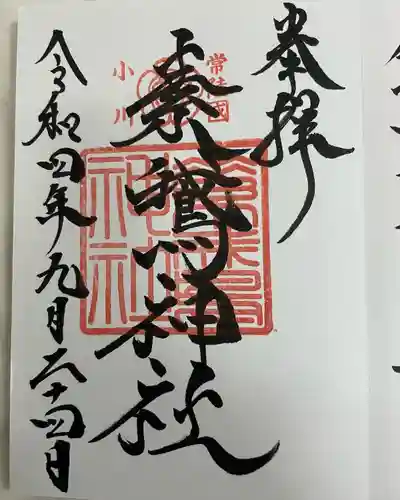 奉拝
常陸國
小川
素鵞神社
令和四年九月二十四日